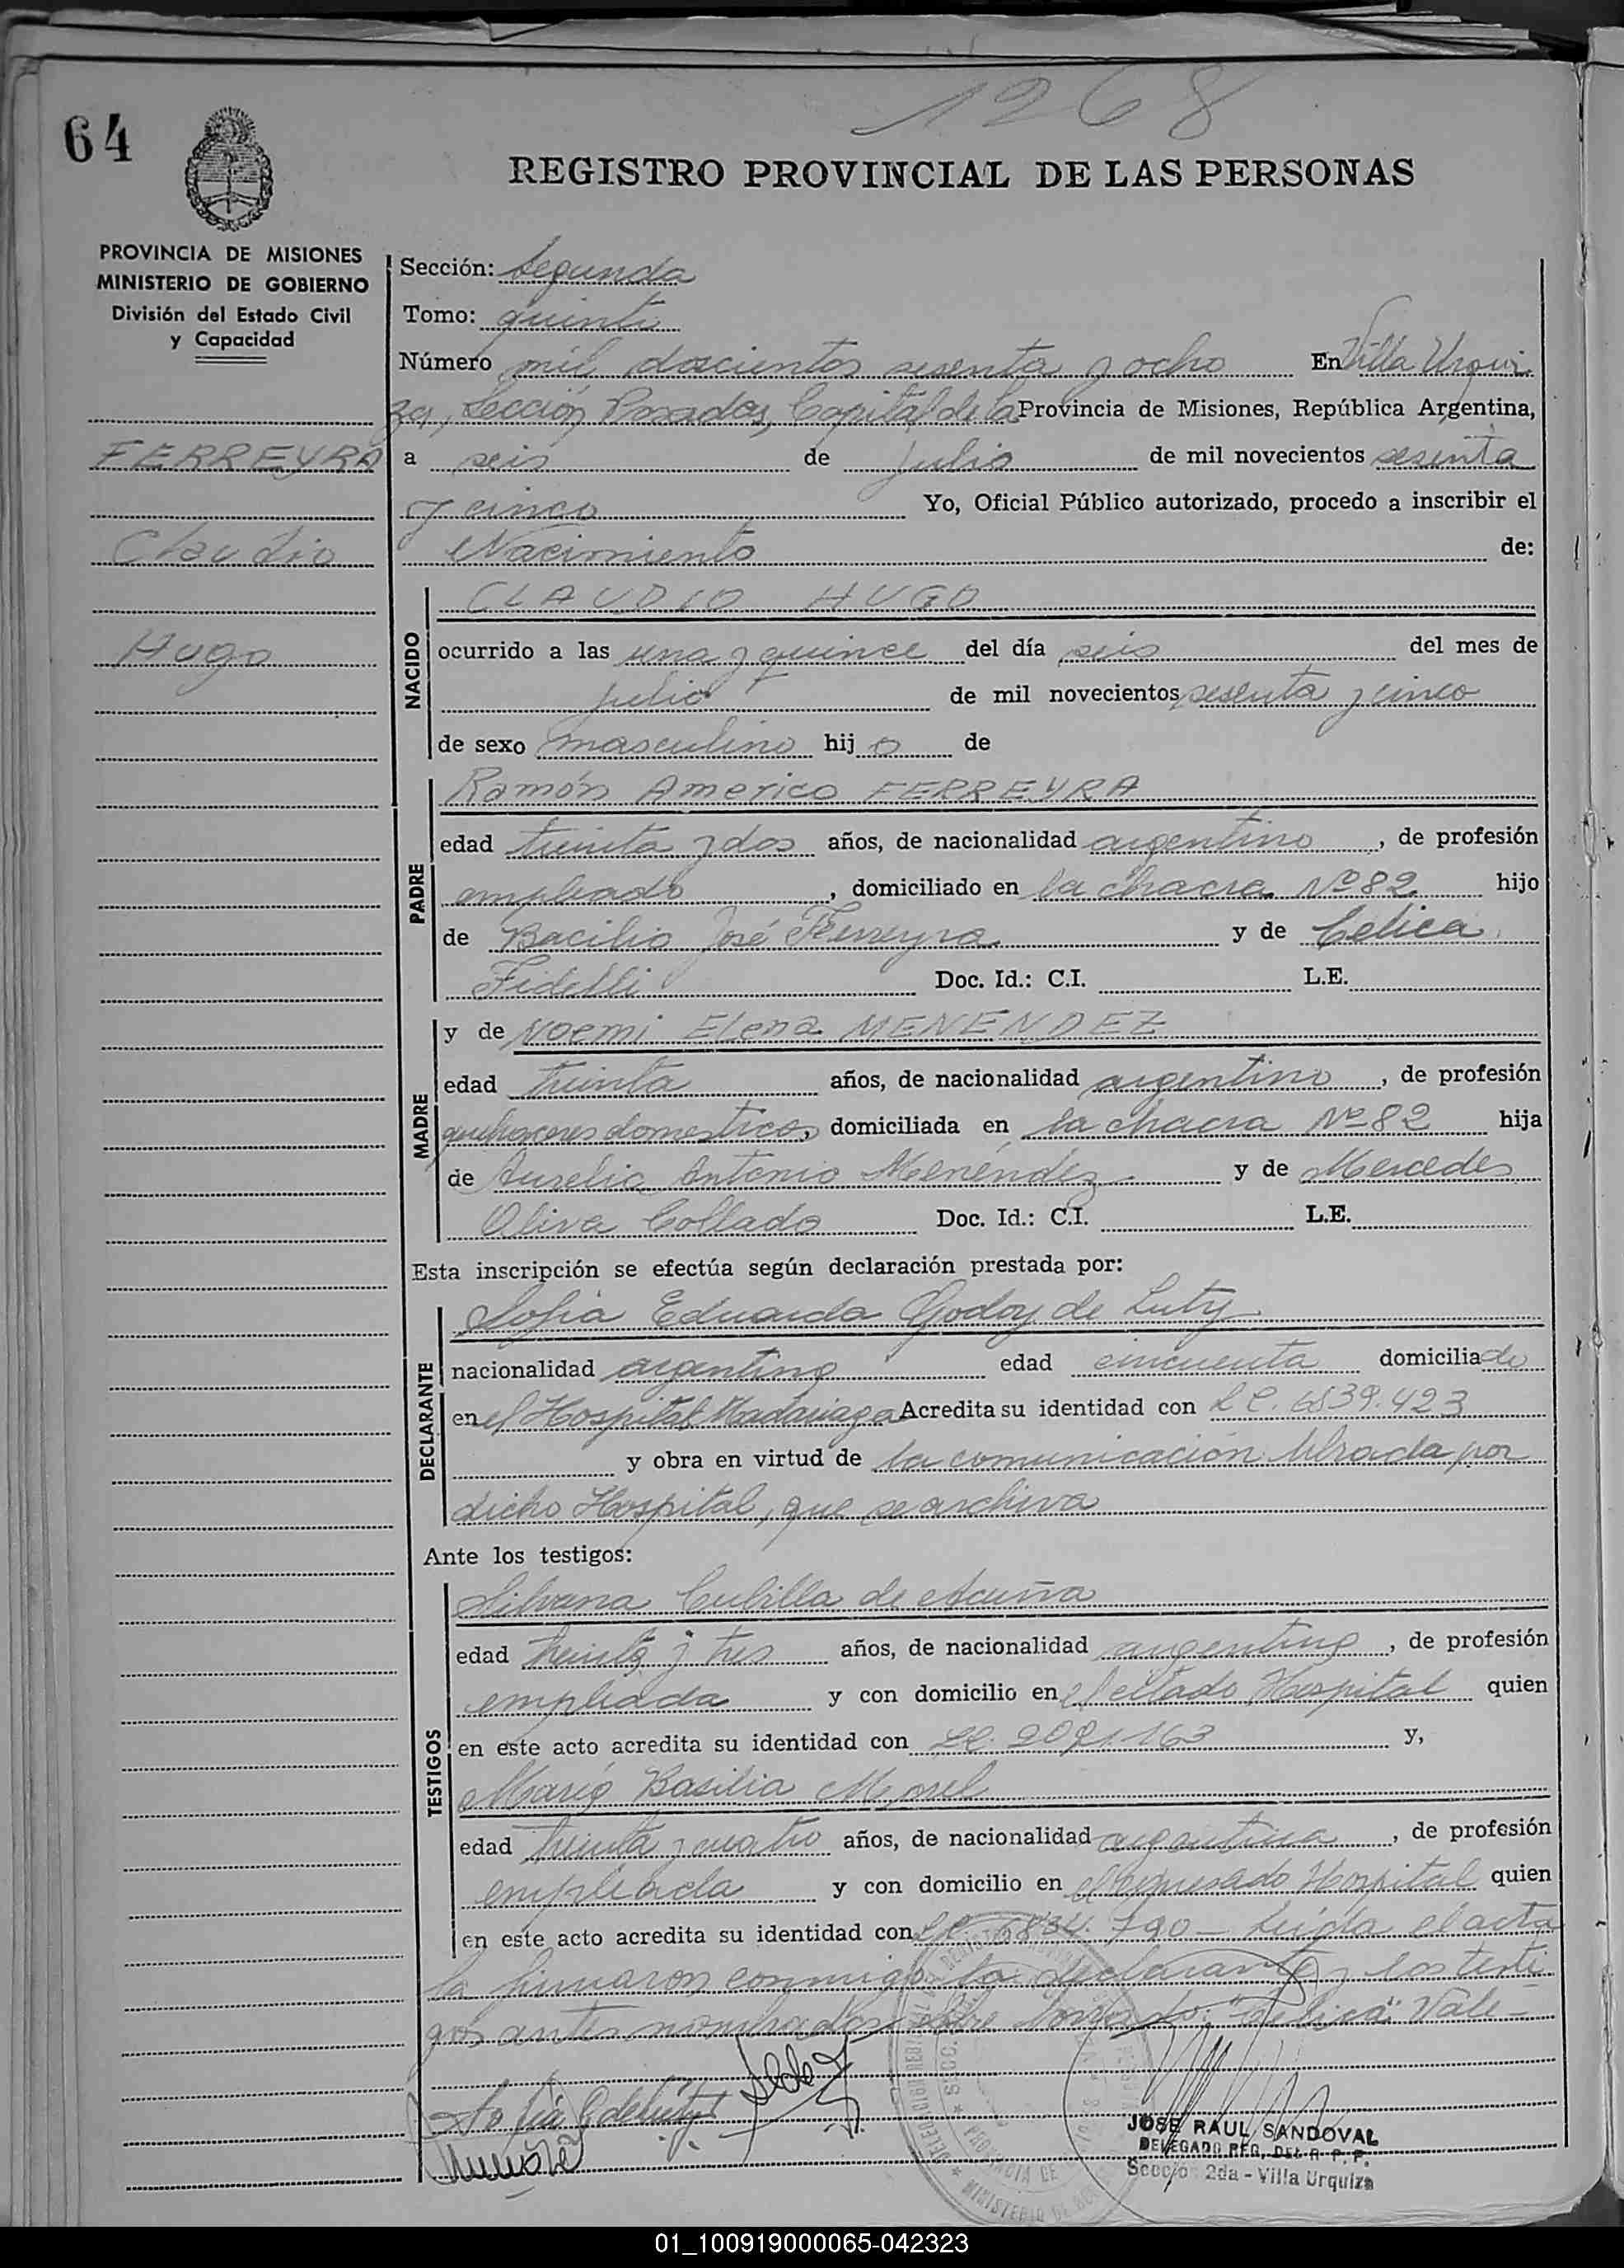 1268
64
REGISTRO PROVINCIAL DE LAS PERSONAS
PROVINCIA DE MISIONES
MINISTERIO DE GOBIERNO
División del Estado Civil
y Capacidad
FERREYRA
Claudio
Hugo
Sección: Segunda
Tomo: quinto
Número mil doscientos sesenta y ocho En Villa Urqui
za, Sección Posadas, Capital de la Provincia de Misiones, República Argentina,
a seis de Julio de mil novecientos sesenta
y cinco Yo, Oficial Público autorizado, procedo a inscribir el
Nacimiento de:
NACIDO
CLAUDIO HUGO
ocurrido a las una y quince del día seis del mes de
julio de mil novecientos sesenta y cinco
de sexo masculino hijo de
PADRE
Ramón Americo FERREYRA
edad treinta y dos años, de nacionalidad argentino, de profesión
empleado, domiciliado en la chacra Nº 82 hijo
de Bacilio José Ferreyra y de Celica
Fidelli Doc. Id.: C.I. L.E.
MADRE
y de Noemi Elena MENENDEZ
edad treinta años, de nacionalidad argentino, de profesión
quehaceres domesticos, domiciliada en la chacra Nº 82 hija
de Aurelio Antonio Menéndez y de Mercedes
Oliva Collado Doc. Id.: C.I. L.E.
Esta inscripción se efectúa según declaración prestada por:
DECLARANTE
Sofia Eduarda Godoy de Luty
nacionalidad argentina edad cincuenta domiciliado
en el Hospital Madariaga Acredita su identidad con L C. 6839.423
y obra en virtud de la comunicación librada por
dicho Hospital, que se archiva
Ante los testigos:
TESTIGOS
Silvana Cubilla de Acuña
edad treinta y tres años, de nacionalidad argentina, de profesión
empleada y con domicilio en el citado Hospital quien
en este acto acredita su identidad con y,
Maria Basilia Morel
edad treinta y cuatro años, de nacionalidad argentina, de profesión
empleada y con domicilio en el expresado Hospital quien
en este acto acredita su identidad con LC 6834.790 - Leida el acta
la firmaron conmigo la declarante y los testi
gos antes nombrados. Sobre borrado: "Celica" Vale-
JOSE RAUL SANDOVAL
DELEGADO REG. DEL R. P. P.
Sección 2da - Villa Urquiza
01_100919000065-042323